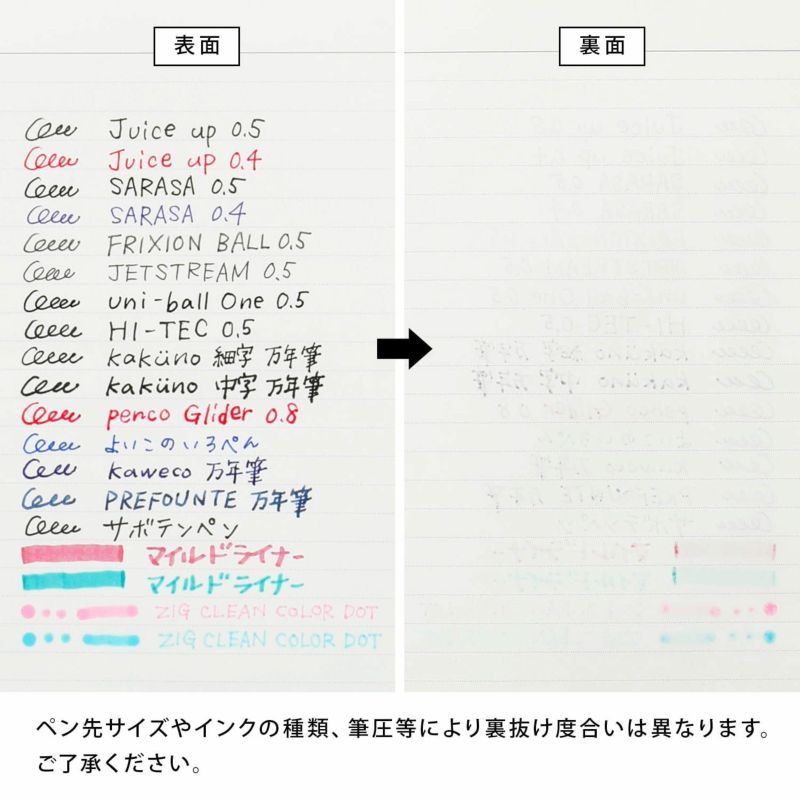 表面
Juice up 0.5
Juice up 0.4
SARASA 0.5
SARASA 0.4
FRIXION BALL 0.5
JETSTREAM 0.5
uni-ball One 0.5
HI-TEC 0.5
kaküno 細字 万年筆
kaküno 中字 万年筆
penco Glider 0.8
よいこのいろぺん
kaweco 万年筆
PREFOUNTE 万年筆
サボテンペン
マイルドライナー
マイルドライナー
ZIG CLEAN COLOR DOT
ZIG CLEAN COLOR DOT
裏面
ペン先サイズやインクの種類、筆圧等により裏抜け度合いは異なります。
ご了承ください。